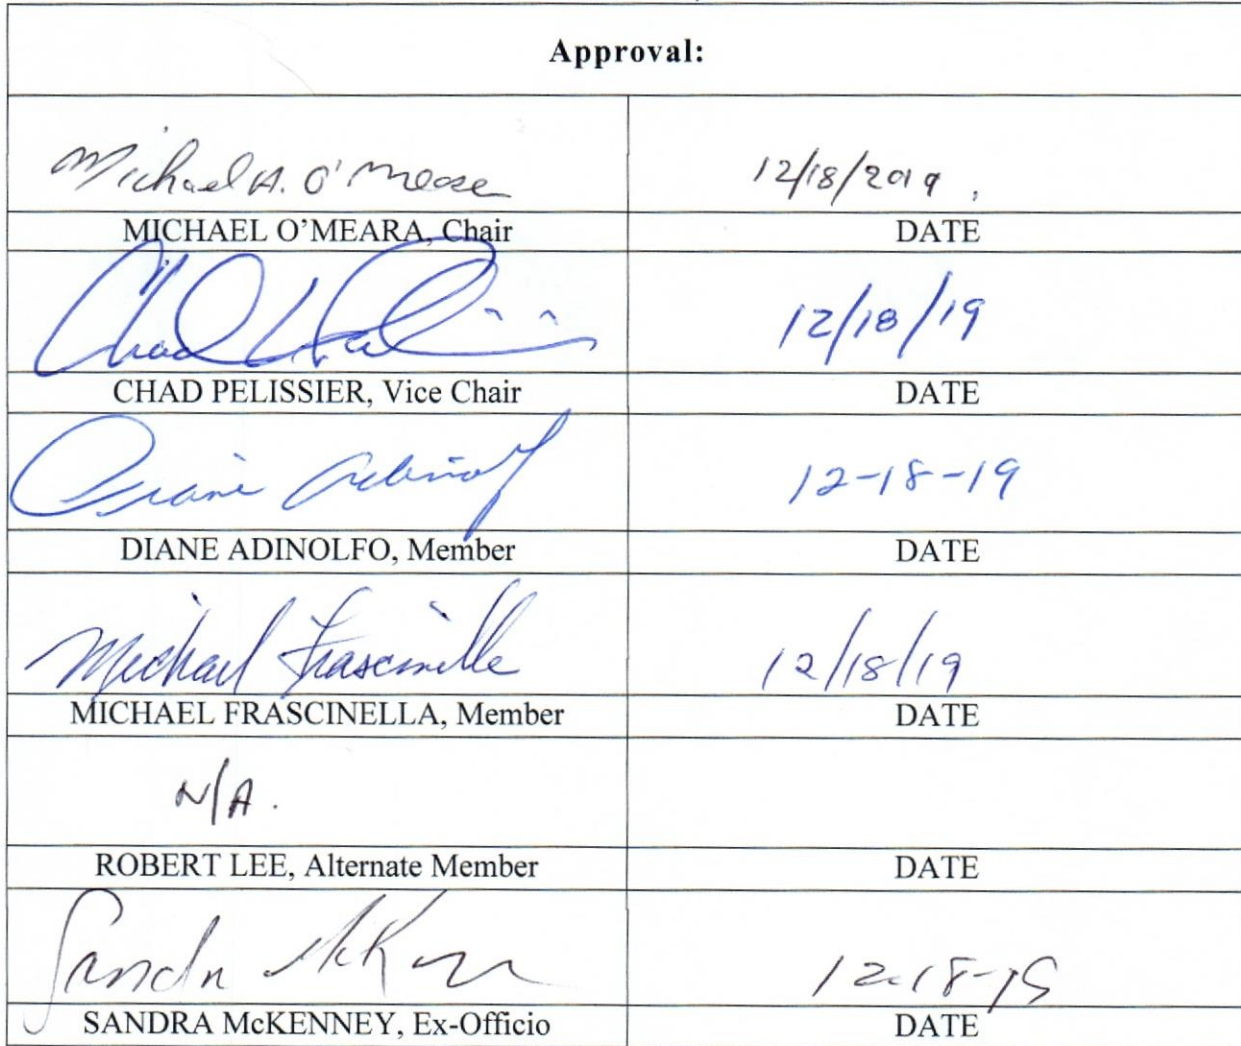 Approval:
Michael A. O'Meara 12/18/2019
MICHAEL O’MEARA, Chair DATE
Chad Pelissier 12/18/19
CHAD PELISSIER, Vice Chair DATE
Diane Adinolfo 12-18-19
DIANE ADINOLFO, Member DATE
Michael Frascinella 12/18/19
MICHAEL FRASCINELLA, Member DATE
N/A.
ROBERT LEE, Alternate Member DATE
Sandra McKenney 12-18-19
SANDRA McKENNEY, Ex-Officio DATE